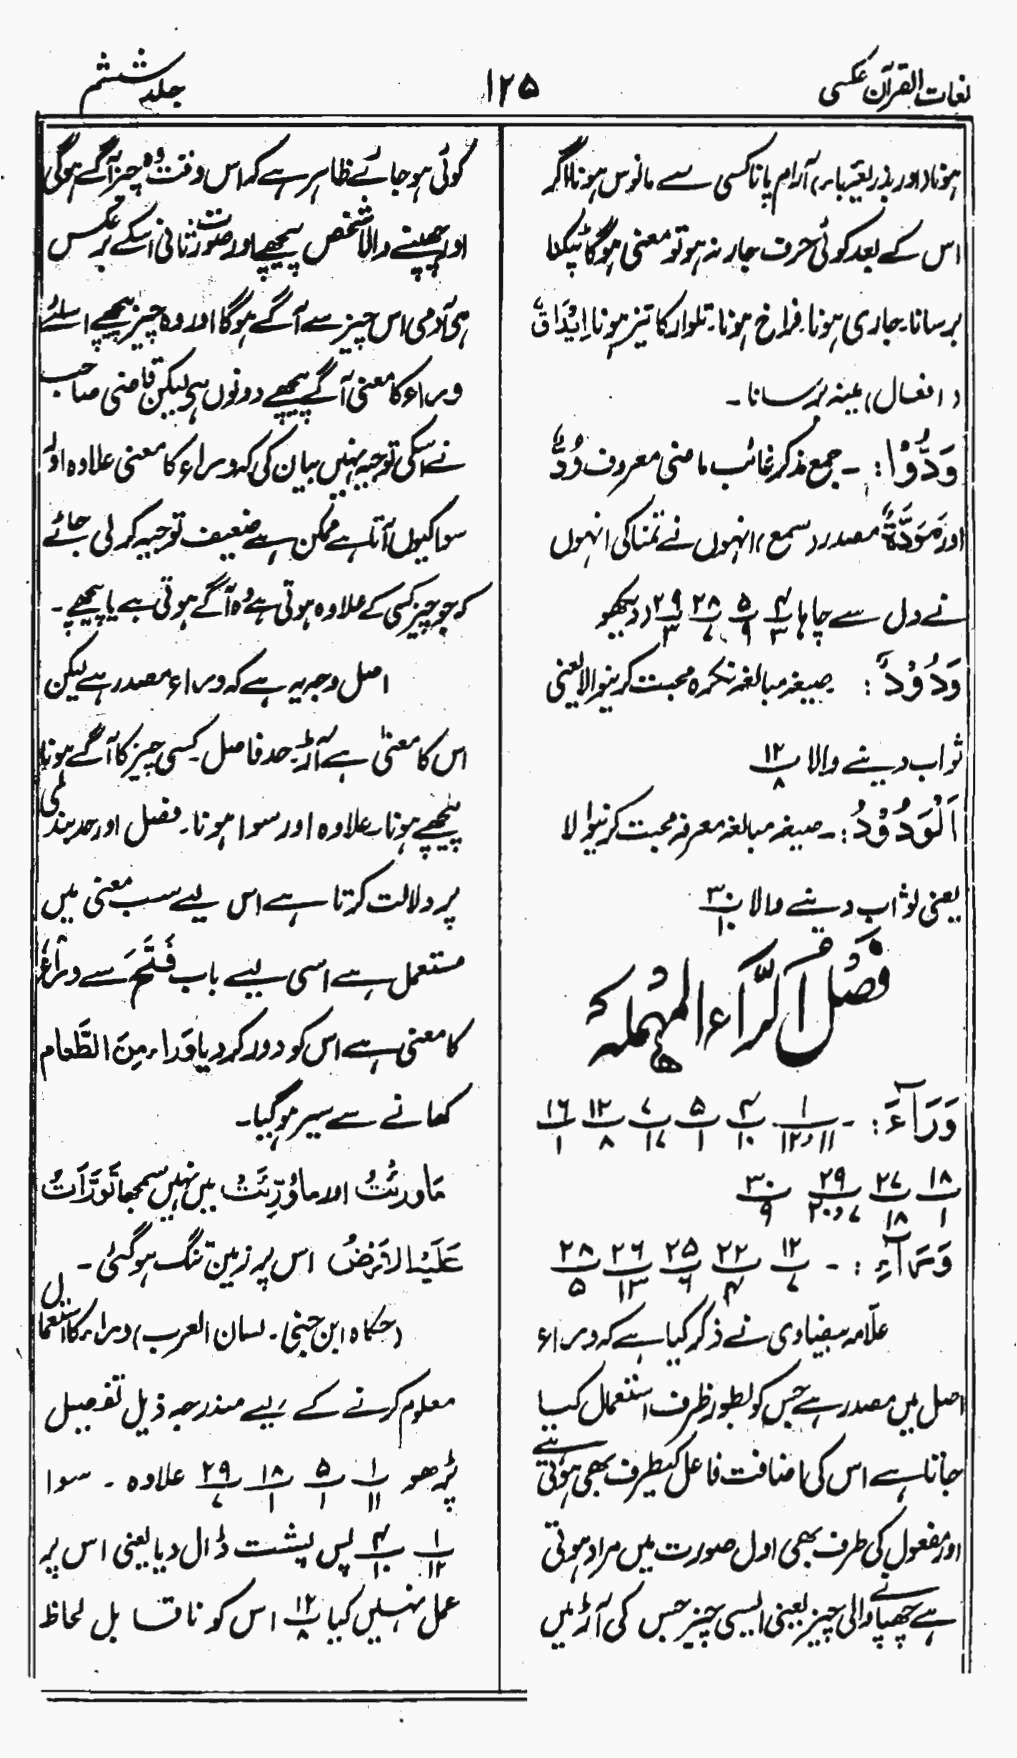 لغات القرآن عکسی ۱۲۵ جلد ششم
ہونا (اور بذریعہ باء) آرام پانا کسی سے مانوس ہونا اگر
اس کے بعد کوئی حرف جار نہ ہو تو معنی ہوگا ٹپکنا
برسانا۔ جاری ہونا۔ فراخ ہونا۔ تلوار کا تیز ہونا اِیْدَاقٌ
(افعال) مینہ برسانا۔
وَدُّوْا:۔ جمع مذکر غائب ماضی معروف وُدٌّ
اور مَوَدَّةٌ مصدر (سمع) انہوں نے تمنا کی انہوں
نے دل سے چاہا ۴/۳ ۵/۹ ۲۸/۷ ۲۹/۳ (دیکھو
وَدُوْدٌ: صیغہ مبالغہ نکرہ محبت کرنیوالا یعنی
ثواب دینے والا ۱۲/۸
اَلْوَدُوْدُ:۔ صیغہ مبالغہ معرفہ محبت کرنیوالا
یعنی ثواب دینے والا ۳۰/۱۰
فصل الرّاء المہملہ
وَرَآءَ:۔ ۱/۱۱و۱۲ ۴/۱۰ ۵/۱ ۷/۱۷ ۱۲/۸ ۱۶/۱
۱۸/۱ ۲۷/۱۸ ۲۹/۷و۲۰ ۳۰/۹
وَرَآءِ:۔ ۱۲/۷ ۲۲/۴ ۲۵/۶ ۲۶/۱۳ ۲۸/۵
علّامہ بیضاوی نے ذکر کیا ہے کہ وراء
اصل میں مصدر ہے جس کو بطور ظرف استعمال کیا
جاتا ہے اس کی اضافت فاعل کیطرف بھی ہوتی ہے
اور مفعول کی طرف بھی اول صورت میں مراد ہوتی
ہے چھپانے والی چیز یعنی ایسی چیز جس کی آڑ میں
کوئی ہو جائے ظاہر ہے کہ اس وقت وہ چیز آگے ہوگی
اور چھپنے والا شخص پیچھے اور صورت ثانی اسکے برعکس
ہی آدمی اس چیز سے آگے ہوگا اور وہ چیز پیچھے اسلئے
وراء کا معنی آگے پیچھے دونوں ہی لیکن قاضی صاحب
نے اسکی توجیہ نہیں بیان کی کہ وراء کا معنی علاوہ اور
سوا کیوں آتا ہے ممکن ہے ضعیف توجیہ کر لی جائے
کہ جو چیز کسی کے علاوہ ہوتی ہے وہ آگے ہوتی ہے یا پیچھے۔
اصل وجہ یہ ہے کہ وراء مصدر ہے لیکن
اس کا معنیٰ ہے آڑ۔ حد فاصل۔ کسی چیز کا آگے ہونا
پیچھے ہونا۔ علاوہ اور سوا ہونا۔ فصل اور حد بندی
پر دلالت کرتا ہے اس لیے سب معنی میں
مستعمل ہے اسی لیے باب فَتَحَ سے ورأَہٗ
کا معنی ہے اس کو دور کر دیا وَراء مِنَ الطَّعام
کھانے سے سیر ہو گیا۔
مَاوَرِئْتُ اور ماوُرِّئْتُ میں نہیں سمجھا تَوَرَّأَتْ
عَلَیْہِ الارضُ اس پر زمین تنگ ہو گئی۔
(حکاہ ابن جنی۔ لسان العرب) وراء کا استعمال
معلوم کرنے کے لیے مندرجہ ذیل تفصیل
پڑھو ۱/۱۱ ۵/۱ ۱۸/۱ ۲۹/۷ علاوہ۔ سوا
۱/۱۲ ۴/۱۰ پس پشت ڈال دیا یعنی اس پر
عمل نہیں کیا ۱۲/۸ اس کو ناقابل لحاظ